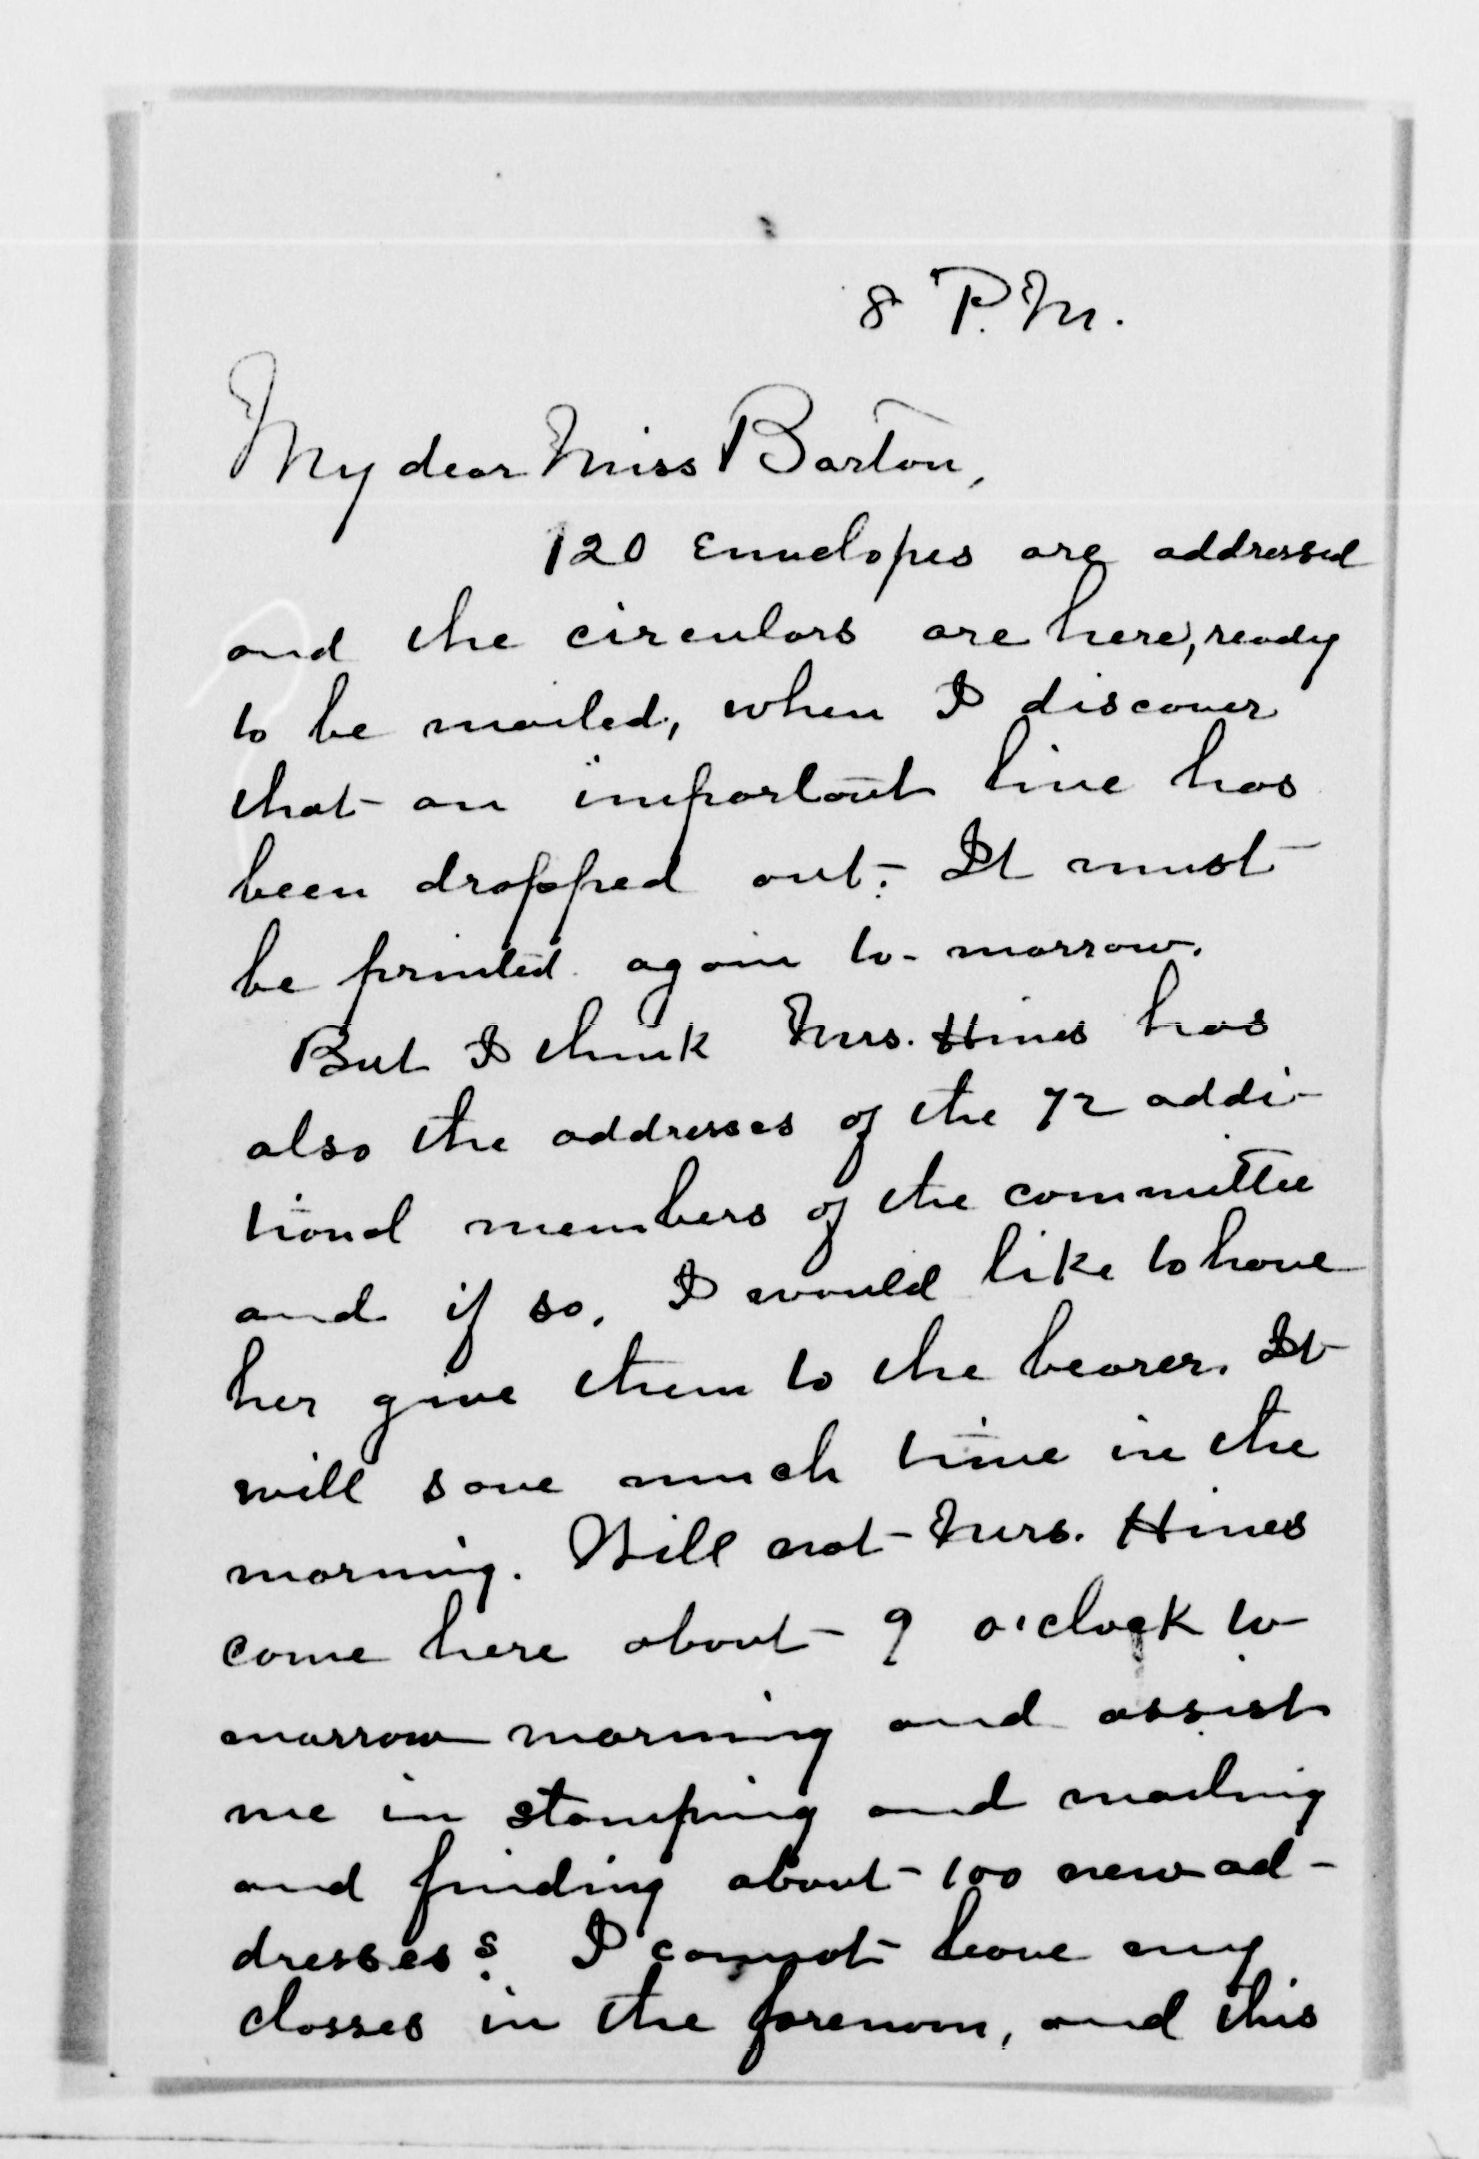 8 P.M.
My dear Miss Barton,
120 envelopes are addressed
and the circulars are here, ready
to be mailed, when I discover
that an important line has
been dropped out. It must
be printed again to-morrow.
But I think Mrs. Hines has
also the addresses of the 72 addi-
tional members of the committee
and if so, I would like to have
her give them to the bearer. It
will save much time in the
morning. Will not Mrs. Hines
come here about 9 o'clock to-
morrow morning and assist
me in stamping and mailing
and finding about 100 new ad-
dresses? I cannot leave my
classes in the forenoon, and this